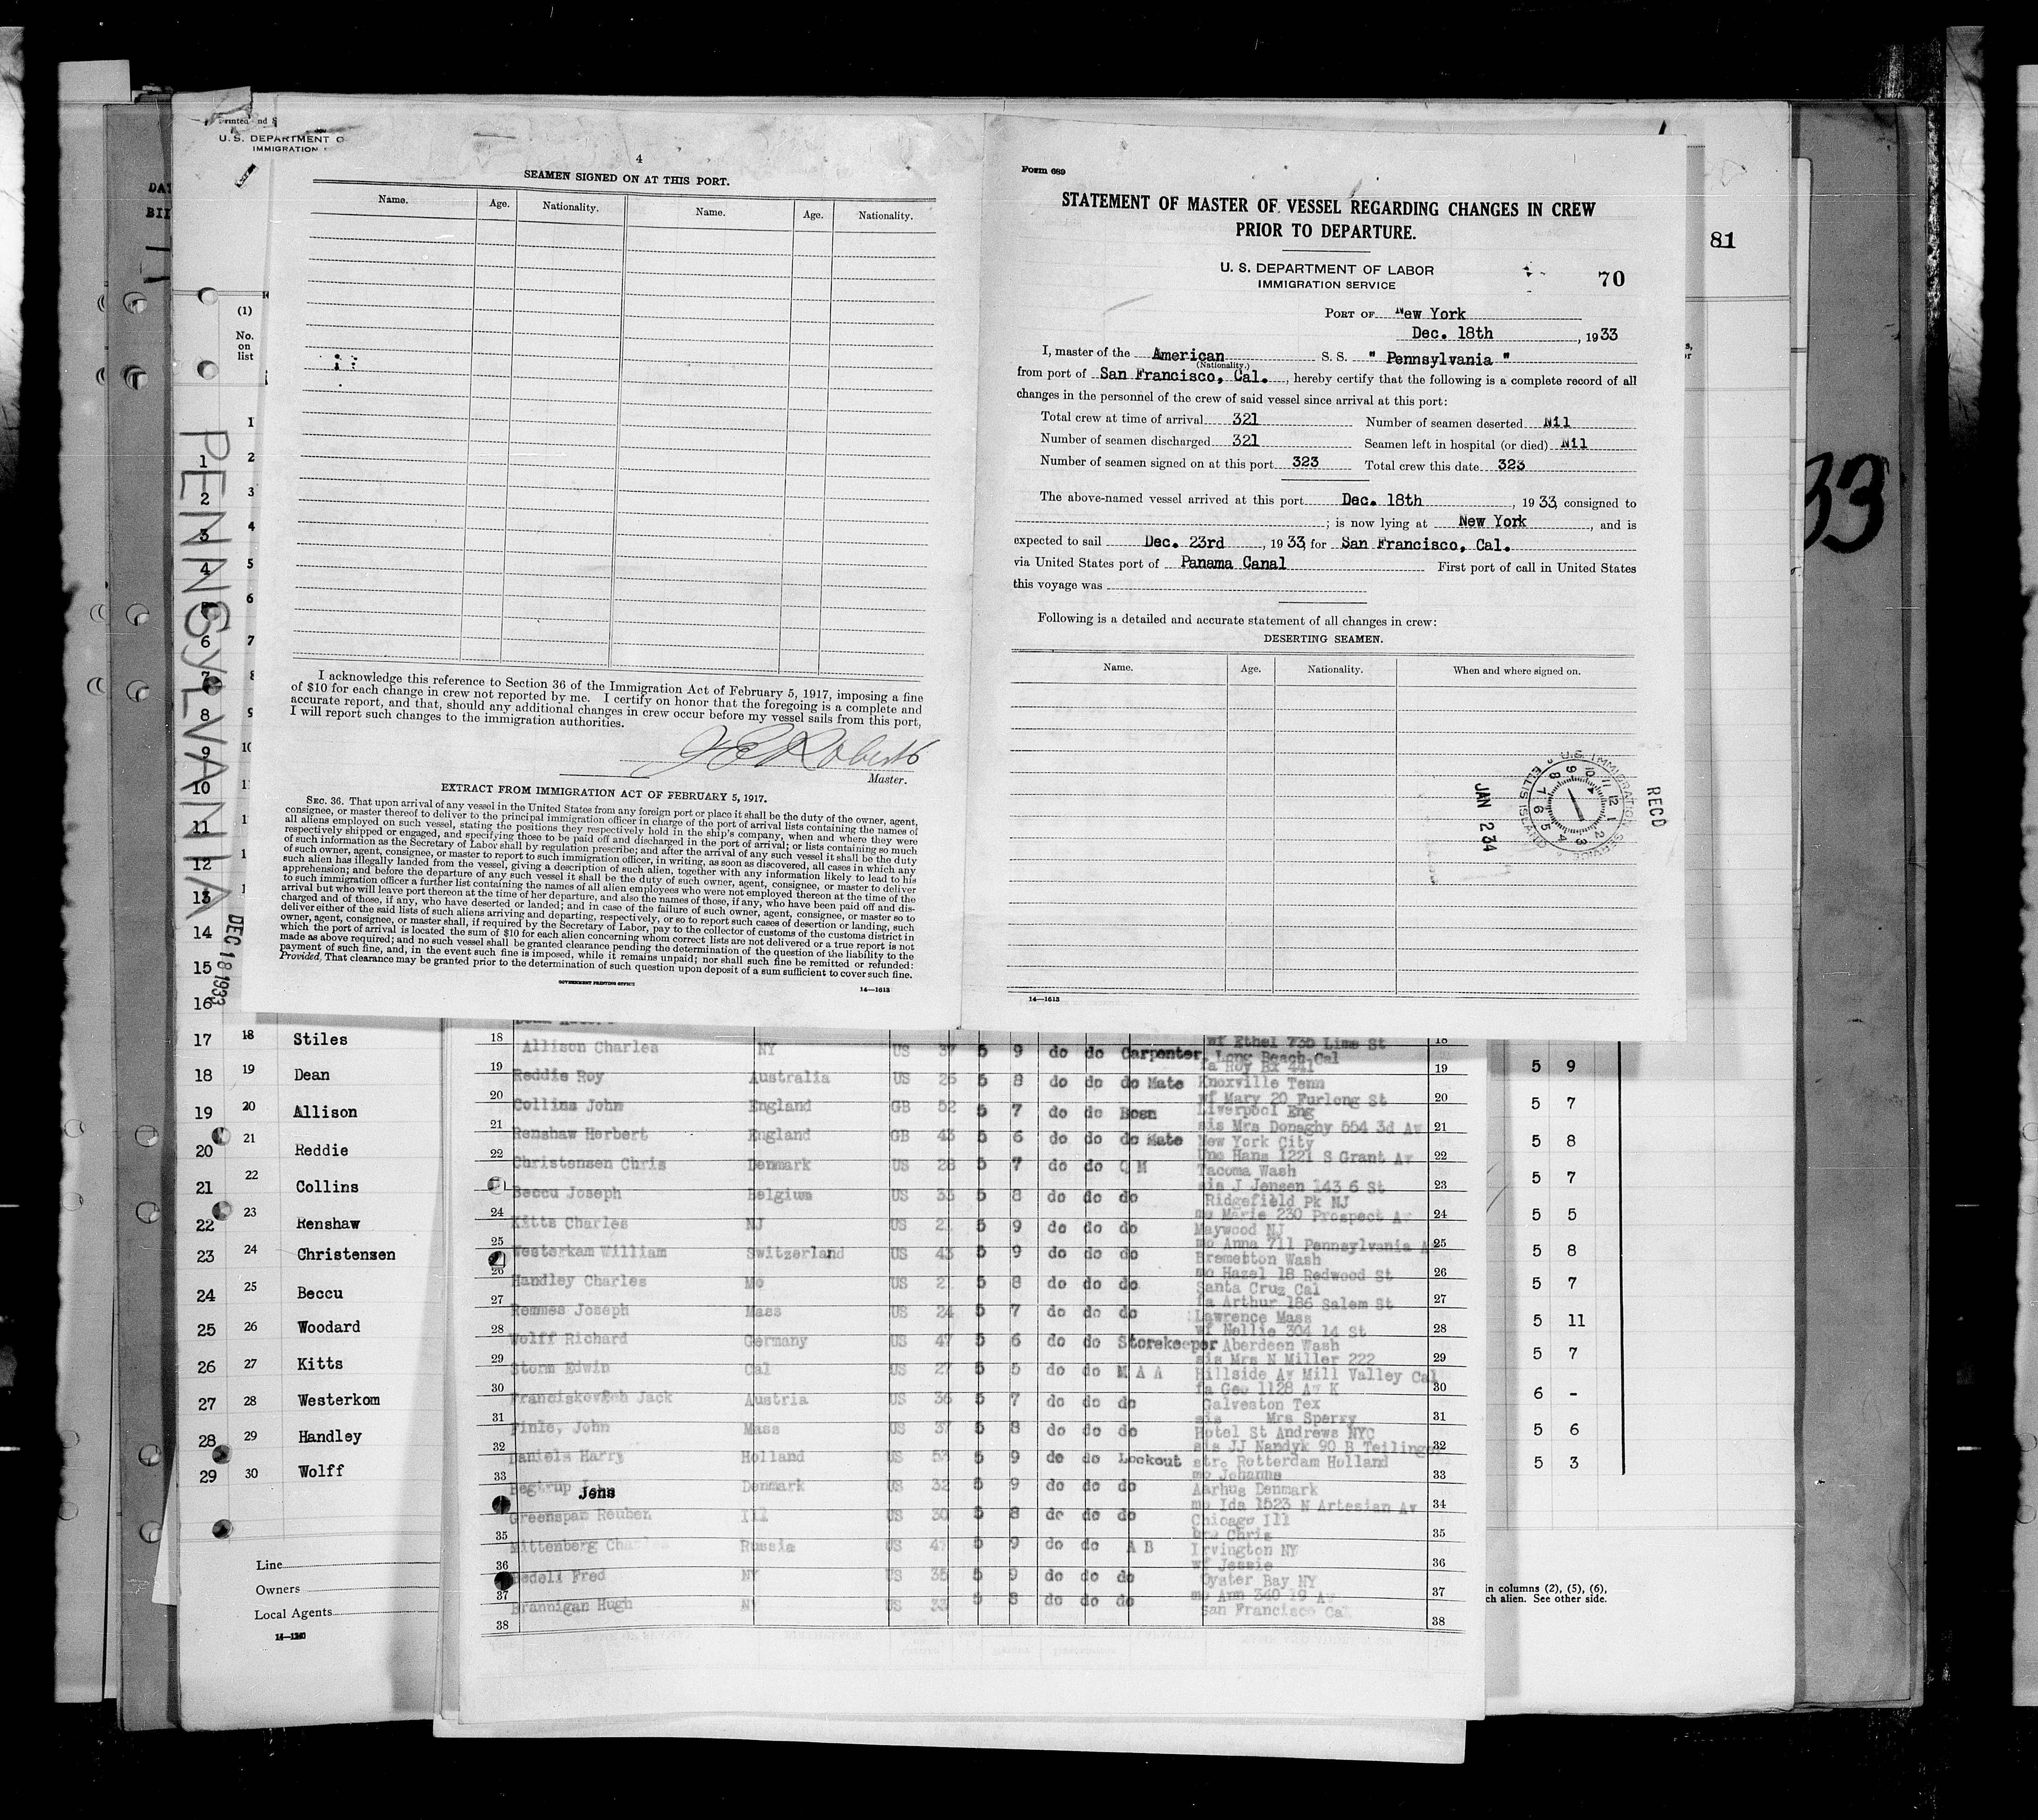 U.S. DEPARTMENT O
IMMIGRATION
4
SEAMEN SIGNED ON AT THIS PORT.
Name. Age. Nationality. Name. Age. Nationality.
I acknowledge this reference to Section 36 of the Immigration Act of February 5, 1917, imposing a fine
of $10 for each change in crew not reported by me. I certify on honor that the foregoing is a complete and
accurate report, and that, should any additional changes in crew occur before my vessel sails from this port,
I will report such changes to the immigration authorities.
Roberts
Master.
EXTRACT FROM IMMIGRATION ACT OF FEBRUARY 5, 1917.
SEC. 36. That upon arrival of any vessel in the United States from any foreign port or place it shall be the duty of the owner, agent,
consignee, or master thereof to deliver to the principal immigration officer in charge of the port of arrival lists containing the names of
all aliens employed on such vessel, stating the positions they respectively hold in the ship's company, when and where they were
respectively shipped or engaged, and specifying those to be paid off and discharged in the port of arrival; or lists containing so much
of such information as the Secretary of Labor shall by regulation prescribe; and after the arrival of any such vessel it shall be the duty
of such owner, agent, consignee, or master to report to such immigration officer, in writing, as soon as discovered, all cases in which any
such alien has illegally landed from the vessel, giving a description of such alien, together with any information likely to lead to his
apprehension; and before the departure of any such vessel it shall be the duty of such owner, agent, consignee, or master to deliver
to such immigration officer a further list containing the names of all alien employees who were not employed thereon at the time of the
arrival but who will leave port thereon at the time of her departure, and also the names of those, if any, who have been paid off and dis-
charged and of those, if any, who have deserted or landed; and in case of the failure of such owner, agent, consignee, or master so to
deliver either of the said lists of such aliens arriving and departing, respectively, or so to report such cases of desertion or landing, such
owner, agent, consignee, or master shall, if required by the Secretary of Labor, pay to the collector of customs of the customs district in
which the port of arrival is located the sum of $10 for each alien concerning whom correct lists are not delivered or a true report is not
made as above required; and no such vessel shall be granted clearance pending the determination of the question of the liability to the
payment of such fine, and, in the event such fine is imposed, while it remains unpaid; nor shall such fine be remitted or refunded:
Provided, That clearance may be granted prior to the determination of such question upon deposit of a sum sufficient to cover such fine.
GOVERNMENT PRINTING OFFICE
14—1613
Form 689
STATEMENT OF MASTER OF VESSEL REGARDING CHANGES IN CREW
PRIOR TO DEPARTURE.
U. S. DEPARTMENT OF LABOR
IMMIGRATION SERVICE
70
PORT OF New York
Dec. 18th, 1933
I, master of the American S. S. " Pennsylvania "
(Nationality.)
from port of San Francisco, Cal., hereby certify that the following is a complete record of all
changes in the personnel of the crew of said vessel since arrival at this port:
Total crew at time of arrival 321 Number of seamen deserted Nil
Number of seamen discharged 321 Seamen left in hospital (or died) Nil
Number of seamen signed on at this port 323 Total crew this date 323
The above-named vessel arrived at this port Dec. 18th, 1933, consigned to
; is now lying at New York, and is
expected to sail Dec. 23rd, 1933, for San Francisco, Cal.
via United States port of Panama Canal First port of call in United States
this voyage was
Following is a detailed and accurate statement of all changes in crew:
DESERTING SEAMEN.
Name. Age. Nationality. When and where signed on.
RECD
U.S. IMMIGRATION SERVICE
ELLIS ISLAND
JAN 2 34
14—1613
81
33
PENNSYLVANIA
DEC 18 1933
(1)
No.
on
list
17 18 Stiles
18 19 Dean 5 9
19 20 Allison 5 7
20 21 Reddie 5 8
21 22 Collins 5 7
22 23 Renshaw 5 5
23 24 Christensen 5 8
24 25 Beccu 5 7
25 26 Woodard 5 11
26 27 Kitts 5 7
27 28 Westerkom 6 -
28 29 Handley 5 6
29 30 Wolff 5 3
Line
Owners
Local Agents
14—1240
in columns (2), (5), (6),
ch alien. See other side.
18 wf Ethel 735 Lime St 18
Allison Charles NY US 37 5 9 do do Carpenter Long Beach Cal
19 fa Roy Bx 441 19
Reddie Roy Australia US 26 5 8 do do do Mate Knoxville Tenn
20 wf Mary 20 Furlong St 20
Collins John England GB 52 5 7 do do Bosn Liverpool Eng
21 sis Mrs Donaghy 554 3d Av 21
Renshaw Herbert England GB 43 5 6 do do do Mate New York City
22 Unc Hans 1221 S Grant Av 22
Christensen Chris Denmark US 28 5 7 do do Q M Tacoma Wash
sis J Jensen 143 6 St 23
Beccu Joseph Belgium US 33 5 8 do do do Ridgefield Pk NJ
24 mo Marie 230 Prospect Av 24
Kitts Charles NJ US 5 9 do do do Maywood NJ
25 mo Anna 711 Pennsylvania 25
Westerkam William Switzerland US 43 5 9 do do do Bremetton Wash
26 mo Hazel 18 Redwood St 26
Handley Charles Mo US 5 8 do do do Santa Cruz Cal
27 fa Arthur 186 Salem St 27
Remmes Joseph Mass US 24 5 7 do do do Lawrence Mass
28 wf Nellie 304 14 St 28
Wolff Richard Germany US 47 5 6 do do Storekeeper Aberdeen Wash
29 sis Mrs N Miller 222 29
Storm Edwin Cal US 27 5 5 do do M A A Hillside Av Mill Valley Cal
30 fa Geo 1128 Av K 30
Jack Austria US 36 5 7 do do do Galveston Tex
31 sis Mrs Sperry 31
John Mass US 37 5 8 do do do Hotel St Andrews NYC
32 sis JJ Nandyk 90 B Teilinger 32
Daniels Harry Holland US 53 5 9 do do Lookout str. Rotterdam Holland
33 mo Johanne 33
Begtrup Jens Denmark US 32 5 9 do do do Aarhus Denmark
mo Ida 1523 N Artesian Av 34
Greenspan Reuben Ill US 30 5 8 do do do Chicago Ill
35 bro Chris 35
Mittenberg Charles Russia US 5 9 do do A B Irvington NY
36 wf Jessie 36
Bedell Fred NY US 35 5 9 do do do Oyster Bay NY
37 mo Ann 340 19 Av 37
Brannigan Hugh NY US 33 5 8 do do do San Francisco Cal
38 38